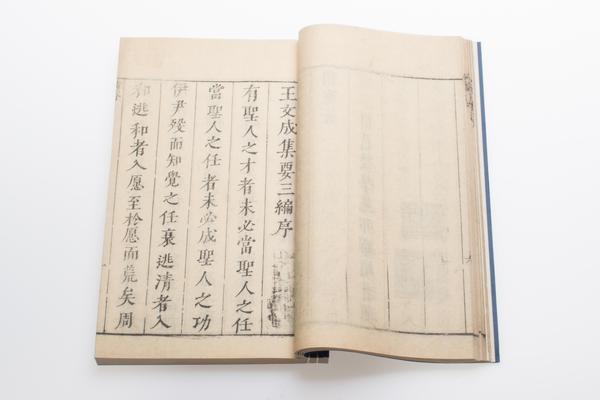 王文成集要三編序
有聖人之才者未必當聖人之任
當聖人之任者未必成聖人之功
伊尹歿而知覺之任衰逃清者入
和逃和者入愿至扵愿而荒矣周